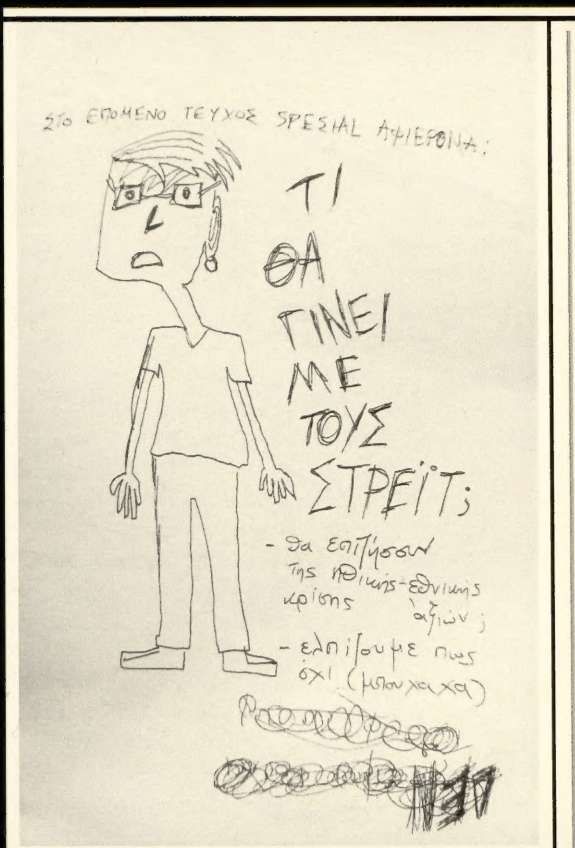 ΣΤΟ ΕΠΟΜΕΝΟ ΤΕΥΧΟΣ SPESIAL ΑΦΙΕΡΩΜΑ:
ΤΙ
ΘΑ
ΓΙΝΕΙ
ΜΕ
ΤΟΥΣ
ΣΤΡΕΪΤ;
- θα επιζήσουν
της ηθικής-εθνικής
κρίσης αξιών;
- ελπίζουμε πως
όχι (μπουχαχα)